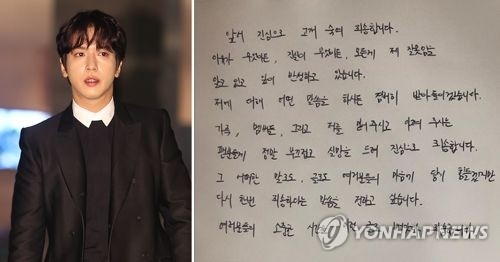 앞서 진심으로 고개 숙여 죄송합니다.
이유가 무엇이든, 진실이 무엇이든, 모든게 제 잘못임을
알고 있고 깊이 반성하고 있습니다.
저에 대해 어떤 말씀을 하시든 겸허히 받아들이겠습니다.
가족, 멤버들, 그리고 저를 믿어주시고 아껴 주시는
팬분들께 정말 부끄럽고 실망을 드려 진심으로 죄송합니다.
그 어떠한 말로도, 글로도 여러분들의 마음에 닿기 힘들겠지만
다시 한번 죄송하다는 말씀을 전하고 싶습니다.
여러분들의 소중한 시간에 이런
YONHAPNEWS